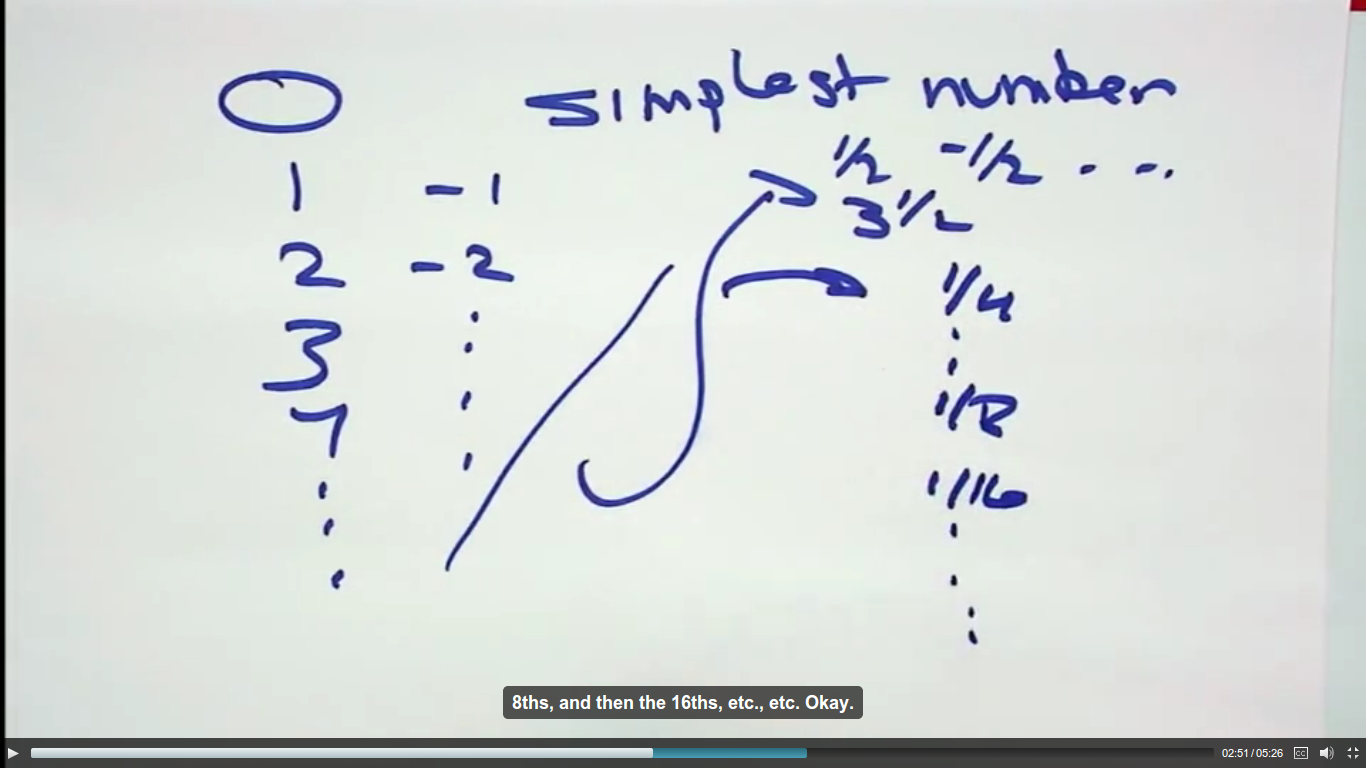 0 simplest number
1 -1 1/2 -1/2 ...
3 1/2
2 -2 1/4
3
1/8
1/16
8ths, and then the 16ths, etc., etc. Okay.
02:51/05:26 CC